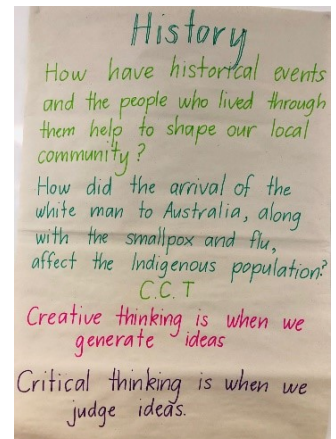 History
How have historical events
and the people who lived through
them help to shape our local
community?
How did the arrival of the
white man to Australia, along
with the smallpox and flu,
affect the Indigenous population?
C.C.T
Creative thinking is when we
generate ideas
Critical thinking is when we
judge ideas.